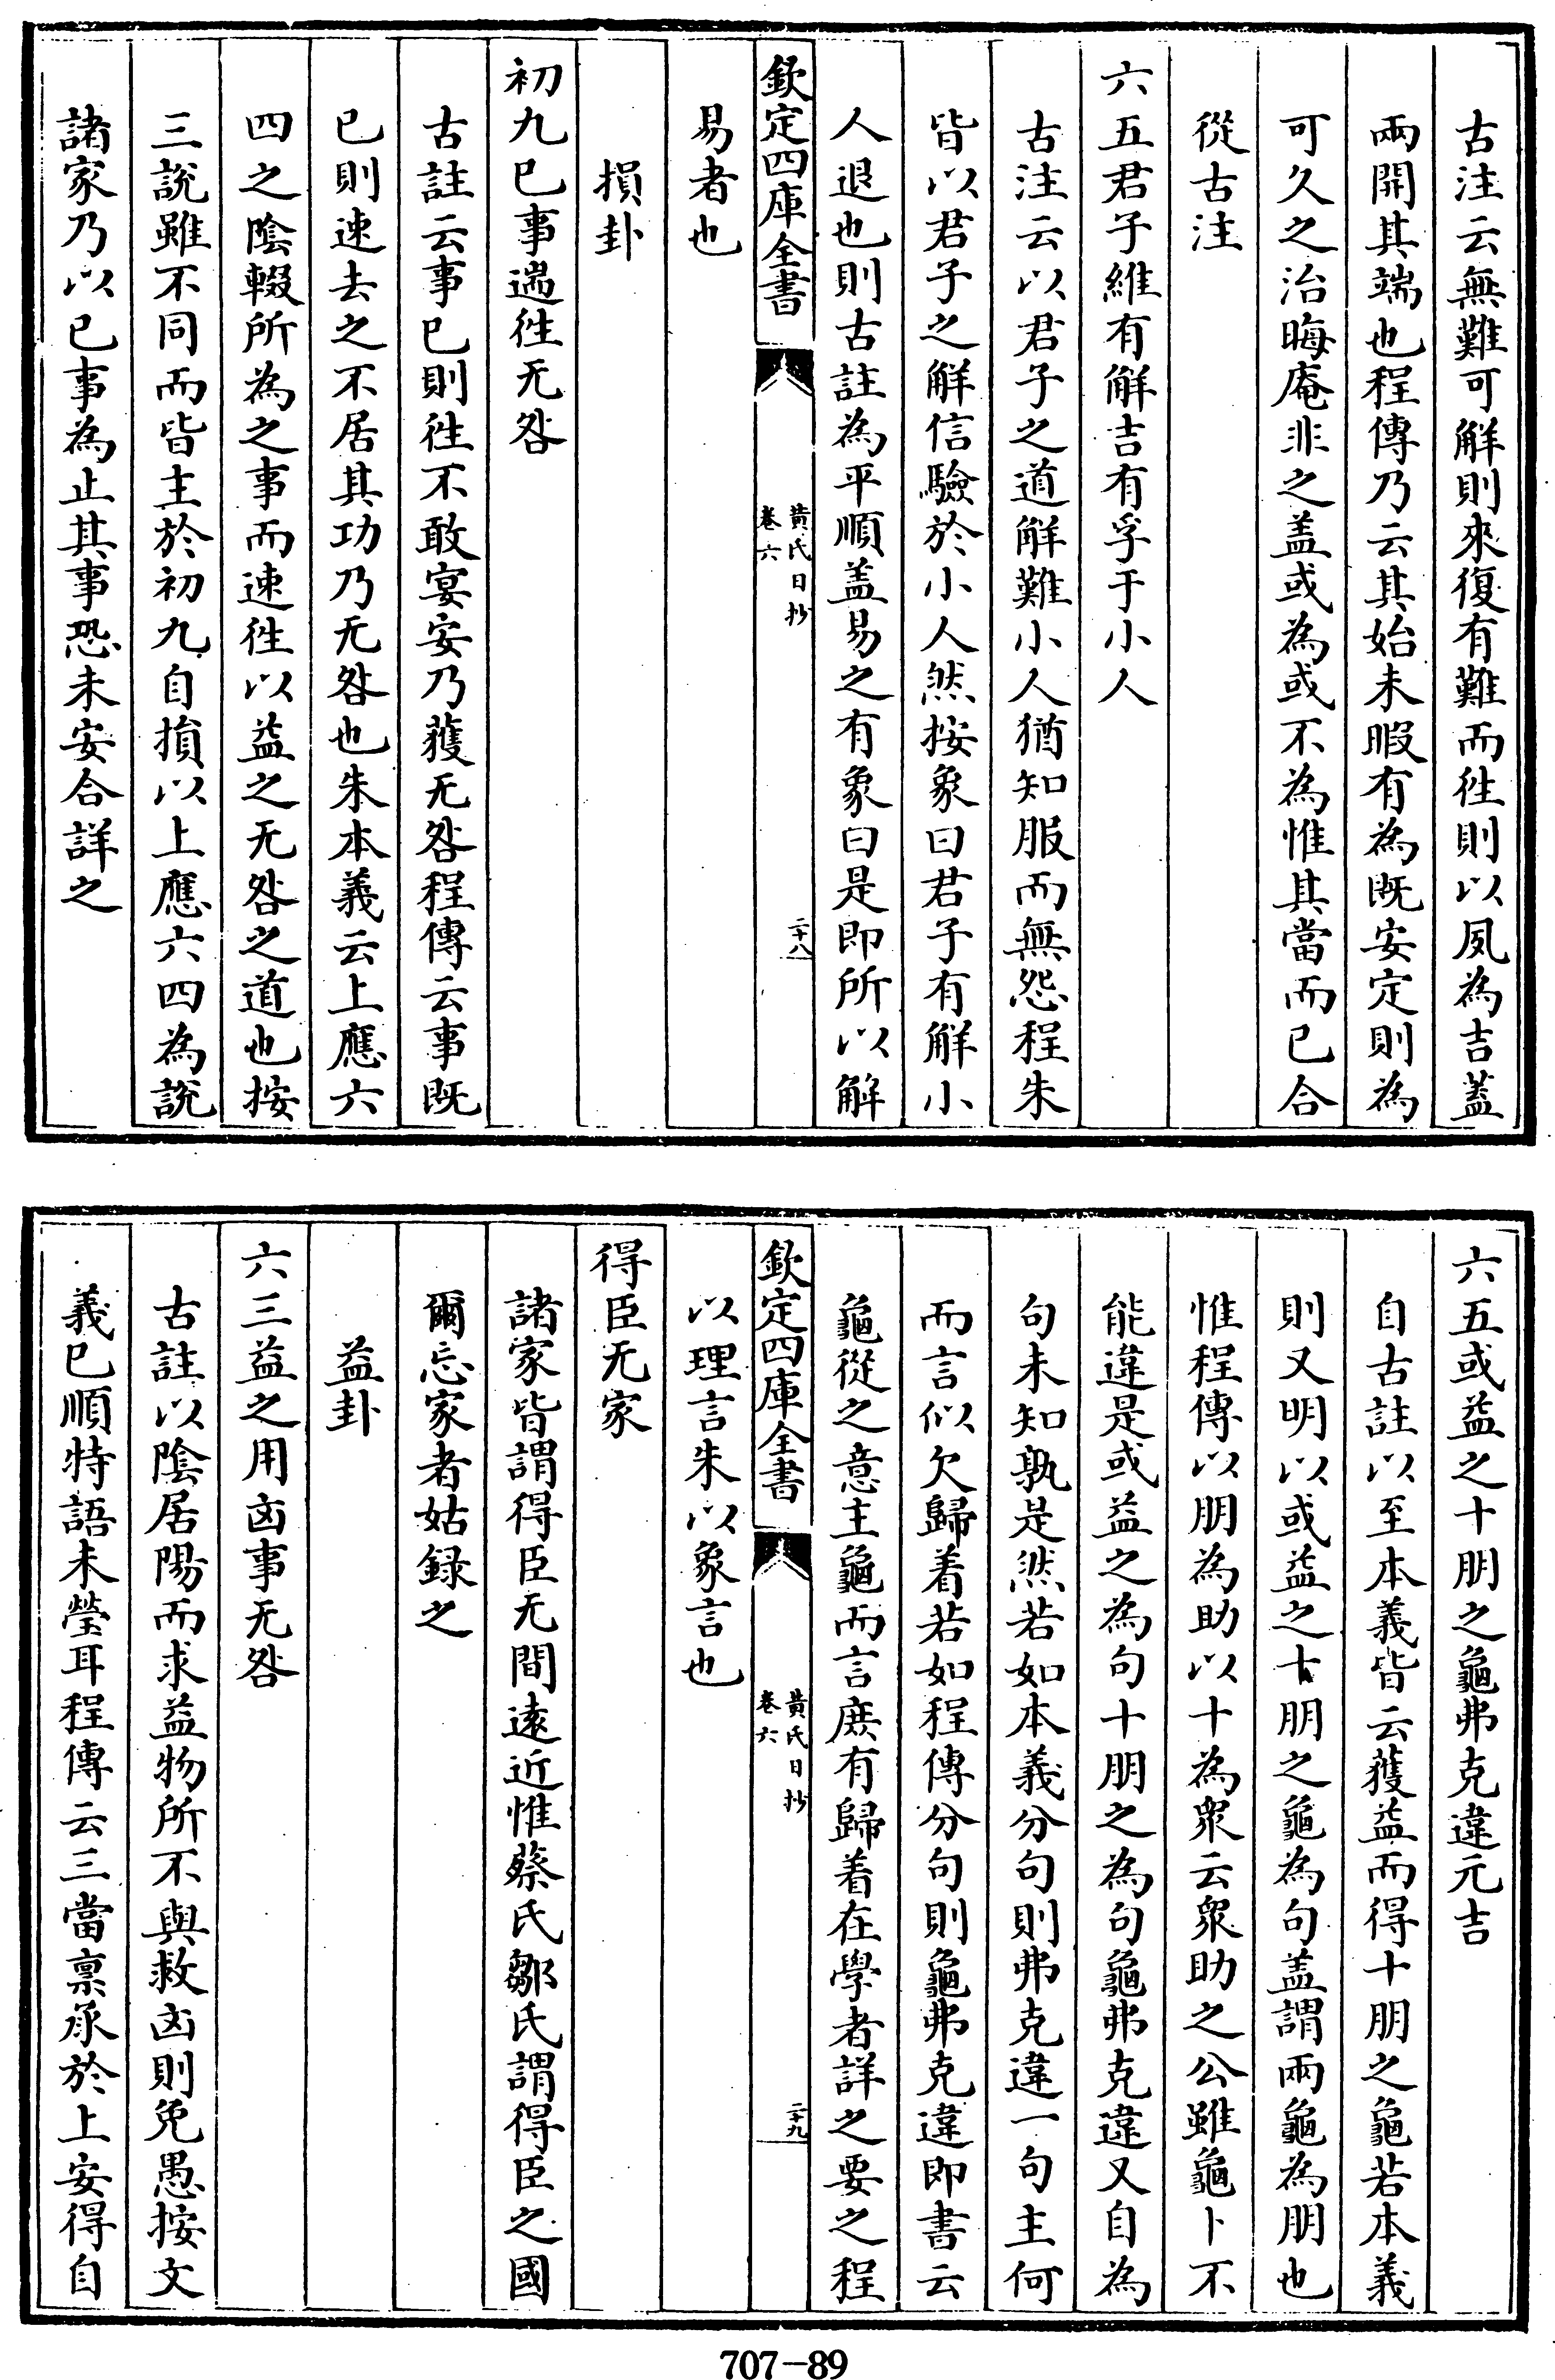 古注云無難可解則來復有難而徃則以夙為吉蓋
兩開其端也程傳乃云其始未暇有為既安定則為
可久之治晦庵非之盖或為或不為惟其當而已合
從古注
六五君子維有解吉有孚于小人
古注云以君子之道解難小人猶知服而無怨程朱
皆以君子之解信驗於小人然按象曰君子有解小
人退也則古註為平順盖易之有象曰是即所以解
欽定四庫全書
黄氏日抄
卷六
二十八
易者也
損卦
初九巳事遄徃无咎
古註云事已則徃不敢宴安乃獲无咎程傳云事既
已則速去之不居其功乃无咎也朱本義云上應六
四之陰輟所為之事而速徃以益之无咎之道也按
三說雖不同而皆主於初九自損以上應六四為說
諸家乃以已事為止其事恐未安合詳之
六五或益之十朋之龜弗克違元吉
自古註以至本義皆云獲益而得十朋之龜若本義
則又明以或益之十朋之龜為句盖謂兩龜為朋也
惟程傳以朋為助以十為衆云衆助之公雖龜卜不
能違是或益之為句十朋之為句龜弗克違又自為
句未知孰是然若如本義分句則弗克違一句主何
而言似欠歸着若如程傳分句則龜弗克違即書云
龜從之意主龜而言庶有歸着在學者詳之要之程
欽定四庫全書
黄氏日抄
卷六
二十九
以理言朱以象言也
得臣无家
諸家皆謂得臣无間逺近惟蔡氏鄒氏謂得臣之國
爾忘家者姑録之
益卦
六三益之用㐫事无咎
古註以陰居陽而求益物所不與救㐫則免愚按文
義巳順特語未瑩耳程傳云三當禀承於上安得自
707-89